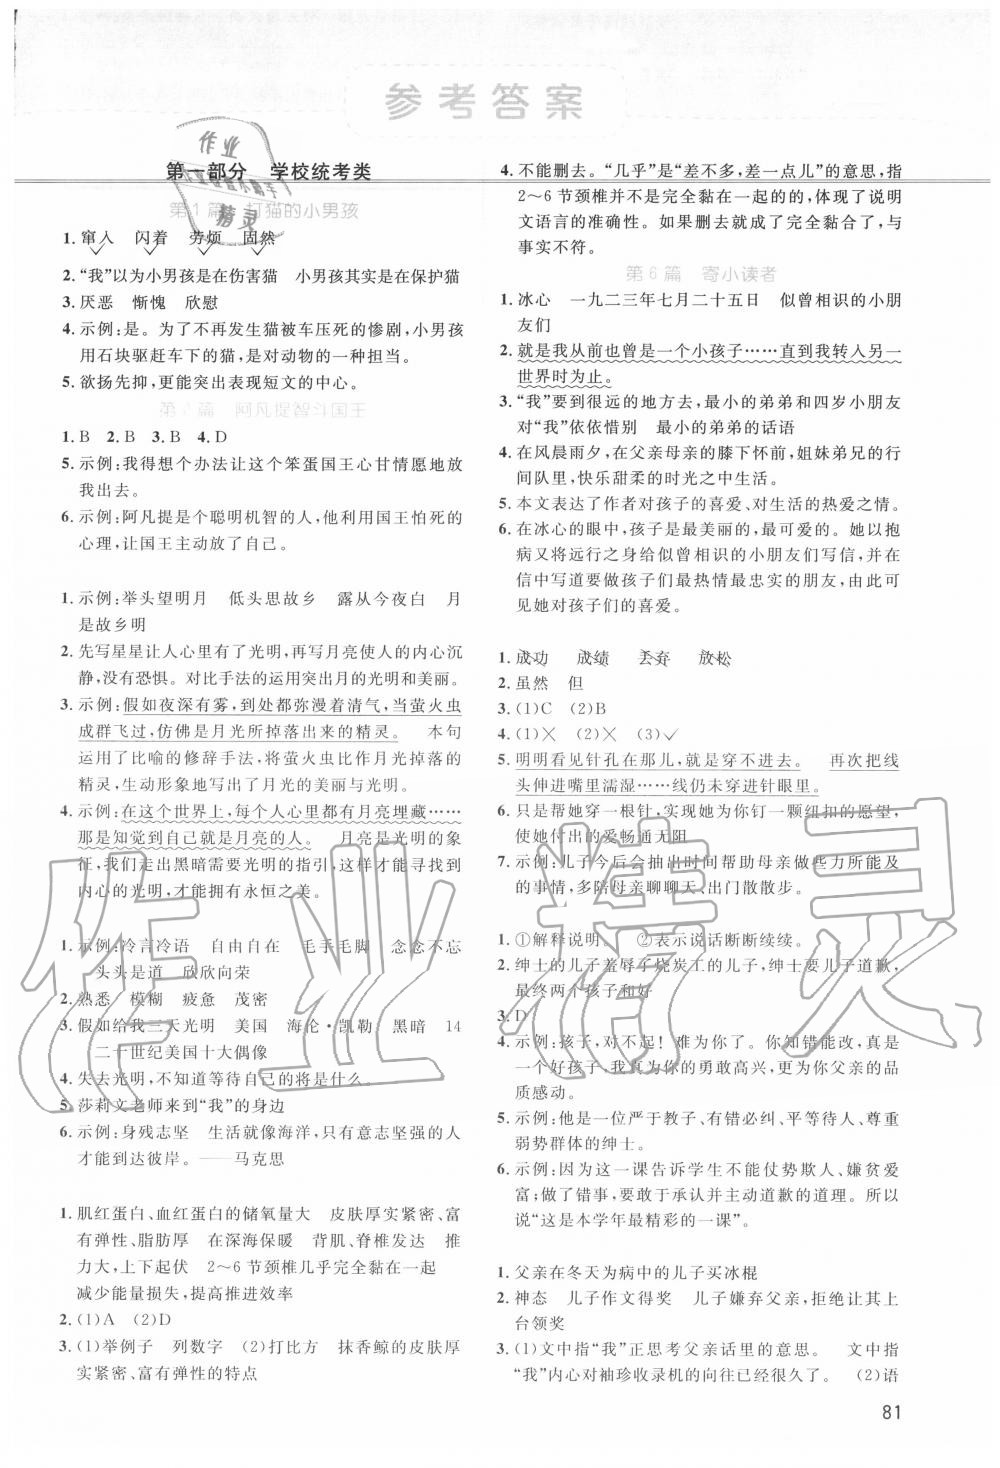 参考答案
第一部分 学校统考类
第1篇 打猫的小男孩
1. 窜入 闪着 劳烦 固然
2. “我”以为小男孩是在伤害猫 小男孩其实是在保护猫
3. 厌恶 惭愧 欣慰
4. 示例:是。为了不再发生猫被车压死的惨剧,小男孩
用石块驱赶车下的猫,是对动物的一种担当。
5. 欲扬先抑,更能突出表现短文的中心。
篇 阿凡提智斗国王
1. B 2. B 3. B 4. D
5. 示例:我得想个办法让这个笨蛋国王心甘情愿地放
我出去。
6. 示例:阿凡提是个聪明机智的人,他利用国王怕死的
心理,让国王主动放了自己。
1. 示例:举头望明月 低头思故乡 露从今夜白 月
是故乡明
2. 先写星星让人心里有了光明,再写月亮使人的内心沉
静,没有恐惧。对比手法的运用突出月的光明和美丽。
3. 示例:假如夜深有雾,到处都弥漫着清气,当萤火虫
成群飞过,仿佛是月光所掉落出来的精灵。 本句
运用了比喻的修辞手法,将萤火虫比作月光掉落的
精灵,生动形象地写出了月光的美丽与光明。
4. 示例:在这个世界上,每个人心里都有月亮埋藏……
那是知觉到自己就是月亮的人。 月亮是光明的象
征,我们走出黑暗需要光明的指引,这样才能寻找到
内心的光明,才能拥有永恒之美。
1. 示例:冷言冷语 自由自在 毛手毛脚 念念不忘
头头是道 欣欣向荣
2. 熟悉 模糊 疲惫 茂密
3. 假如给我三天光明 美国 海伦·凯勒 黑暗 14
二十世纪美国十大偶像
4. 失去光明,不知道等待自己的将是什么。
5. 莎莉文老师来到“我”的身边
6. 示例:身残志坚 生活就像海洋,只有意志坚强的人
才能到达彼岸。——马克思
1. 肌红蛋白、血红蛋白的储氧量大 皮肤厚实紧密、富
有弹性、脂肪厚 在深海保暖 背肌、脊椎发达 推
力大,上下起伏 2～6节颈椎几乎完全黏在一起
减少能量损失,提高推进效率
2. (1)A (2)D
3. (1)举例子 列数字 (2)打比方 抹香鲸的皮肤厚
实紧密、富有弹性的特点
4. 不能删去。“几乎”是“差不多,差一点儿”的意思,指
2～6节颈椎并不是完全黏在一起的,体现了说明
文语言的准确性。如果删去就成了完全黏合了,与
事实不符。
第6篇 寄小读者
1. 冰心 一九二三年七月二十五日 似曾相识的小朋
友们
2. 就是我从前也曾是一个小孩子……直到我转入另一
世界时为止。
3. “我”要到很远的地方去,最小的弟弟和四岁小朋友
对“我”依依惜别 最小的弟弟的话语
4. 在风晨雨夕,在父亲母亲的膝下怀前,姐妹弟兄的行
间队里,快乐甜柔的时光之中生活。
5. 本文表达了作者对孩子的喜爱、对生活的热爱之情。
6. 在冰心的眼中,孩子是最美丽的、最可爱的。她以抱
病又将远行之身给似曾相识的小朋友们写信,并在
信中写道要做孩子们最热情最忠实的朋友,由此可
见她对孩子们的喜爱。
1. 成功 成绩 丢弃 放松
2. 虽然 但
3. (1)C (2)B
4. (1)✕ (2)✕ (3)✓
5. 明明看见针孔在那儿,就是穿不进去。 再次把线
头伸进嘴里濡湿……线仍未穿进针眼里。
6. 只是帮她穿一根针,实现她为你钉一颗纽扣的愿望,
使她付出的爱畅通无阻
7. 示例:儿子今后会抽出时间帮助母亲做些力所能及
的事情,多陪母亲聊聊天、出门散散步。
1. ①解释说明。 ②表示说话断断续续。
2. 绅士的儿子羞辱了烧炭工的儿子,绅士要儿子道歉,
最终两个孩子和好
3. D
4. 示例:孩子,对不起！难为你了。你知错能改,真是
一个好孩子,我为你的勇敢高兴,也为你父亲的品
质感动。
5. 示例:他是一位严于教子、有错必纠、平等待人、尊重
弱势群体的绅士。
6. 示例:因为这一课告诉学生不能仗势欺人、嫌贫爱
富;做了错事,要敢于承认并主动道歉的道理。所以
说“这是本学年最精彩的一课”。
1. 父亲在冬天为病中的儿子买冰棍
2. 神态 儿子作文得奖 儿子嫌弃父亲,拒绝让其上
台领奖
3. (1)文中指“我”正思考父亲话里的意思。 文中指
“我”内心对袖珍收录机的向往已经很久了。 (2)语
81
作业精灵
作业精灵